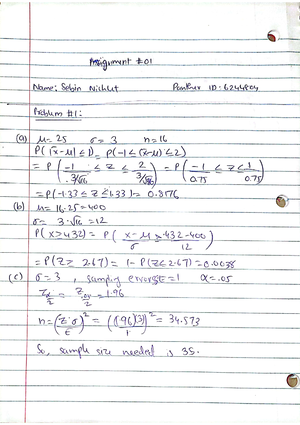 Assignment #01
Name: Sebin Nichlut Panther ID: 6244804
Problem #1:
(a) μ=25 σ=3 n=16
P(|x̄-μ|≤1)= P(-1≤(x̄-μ)≤2)
= P(-1/(3/√16) ≤ z ≤ 2/(3/√16)) = P(-1/0.75 ≤ z ≤ 1/0.75)
= P(-1.33 ≤ Z ≤ 1.33) = 0.8176
(b) μ= 16·25=400
σ= 3·√16=12
P(x>432) = P( x-μ/σ ≥ 432-400/12
= P(Z≥ 2.67) = 1- P(Z<2.67) =0.0038
(c) σ=3, sampling error E=1 α=.05
Zα/2 = Z.05/2 = 1.96
n=(Z·σ/E)² = ((1.96)(3)/1)² = 34.573
So, sample size needed is 35.